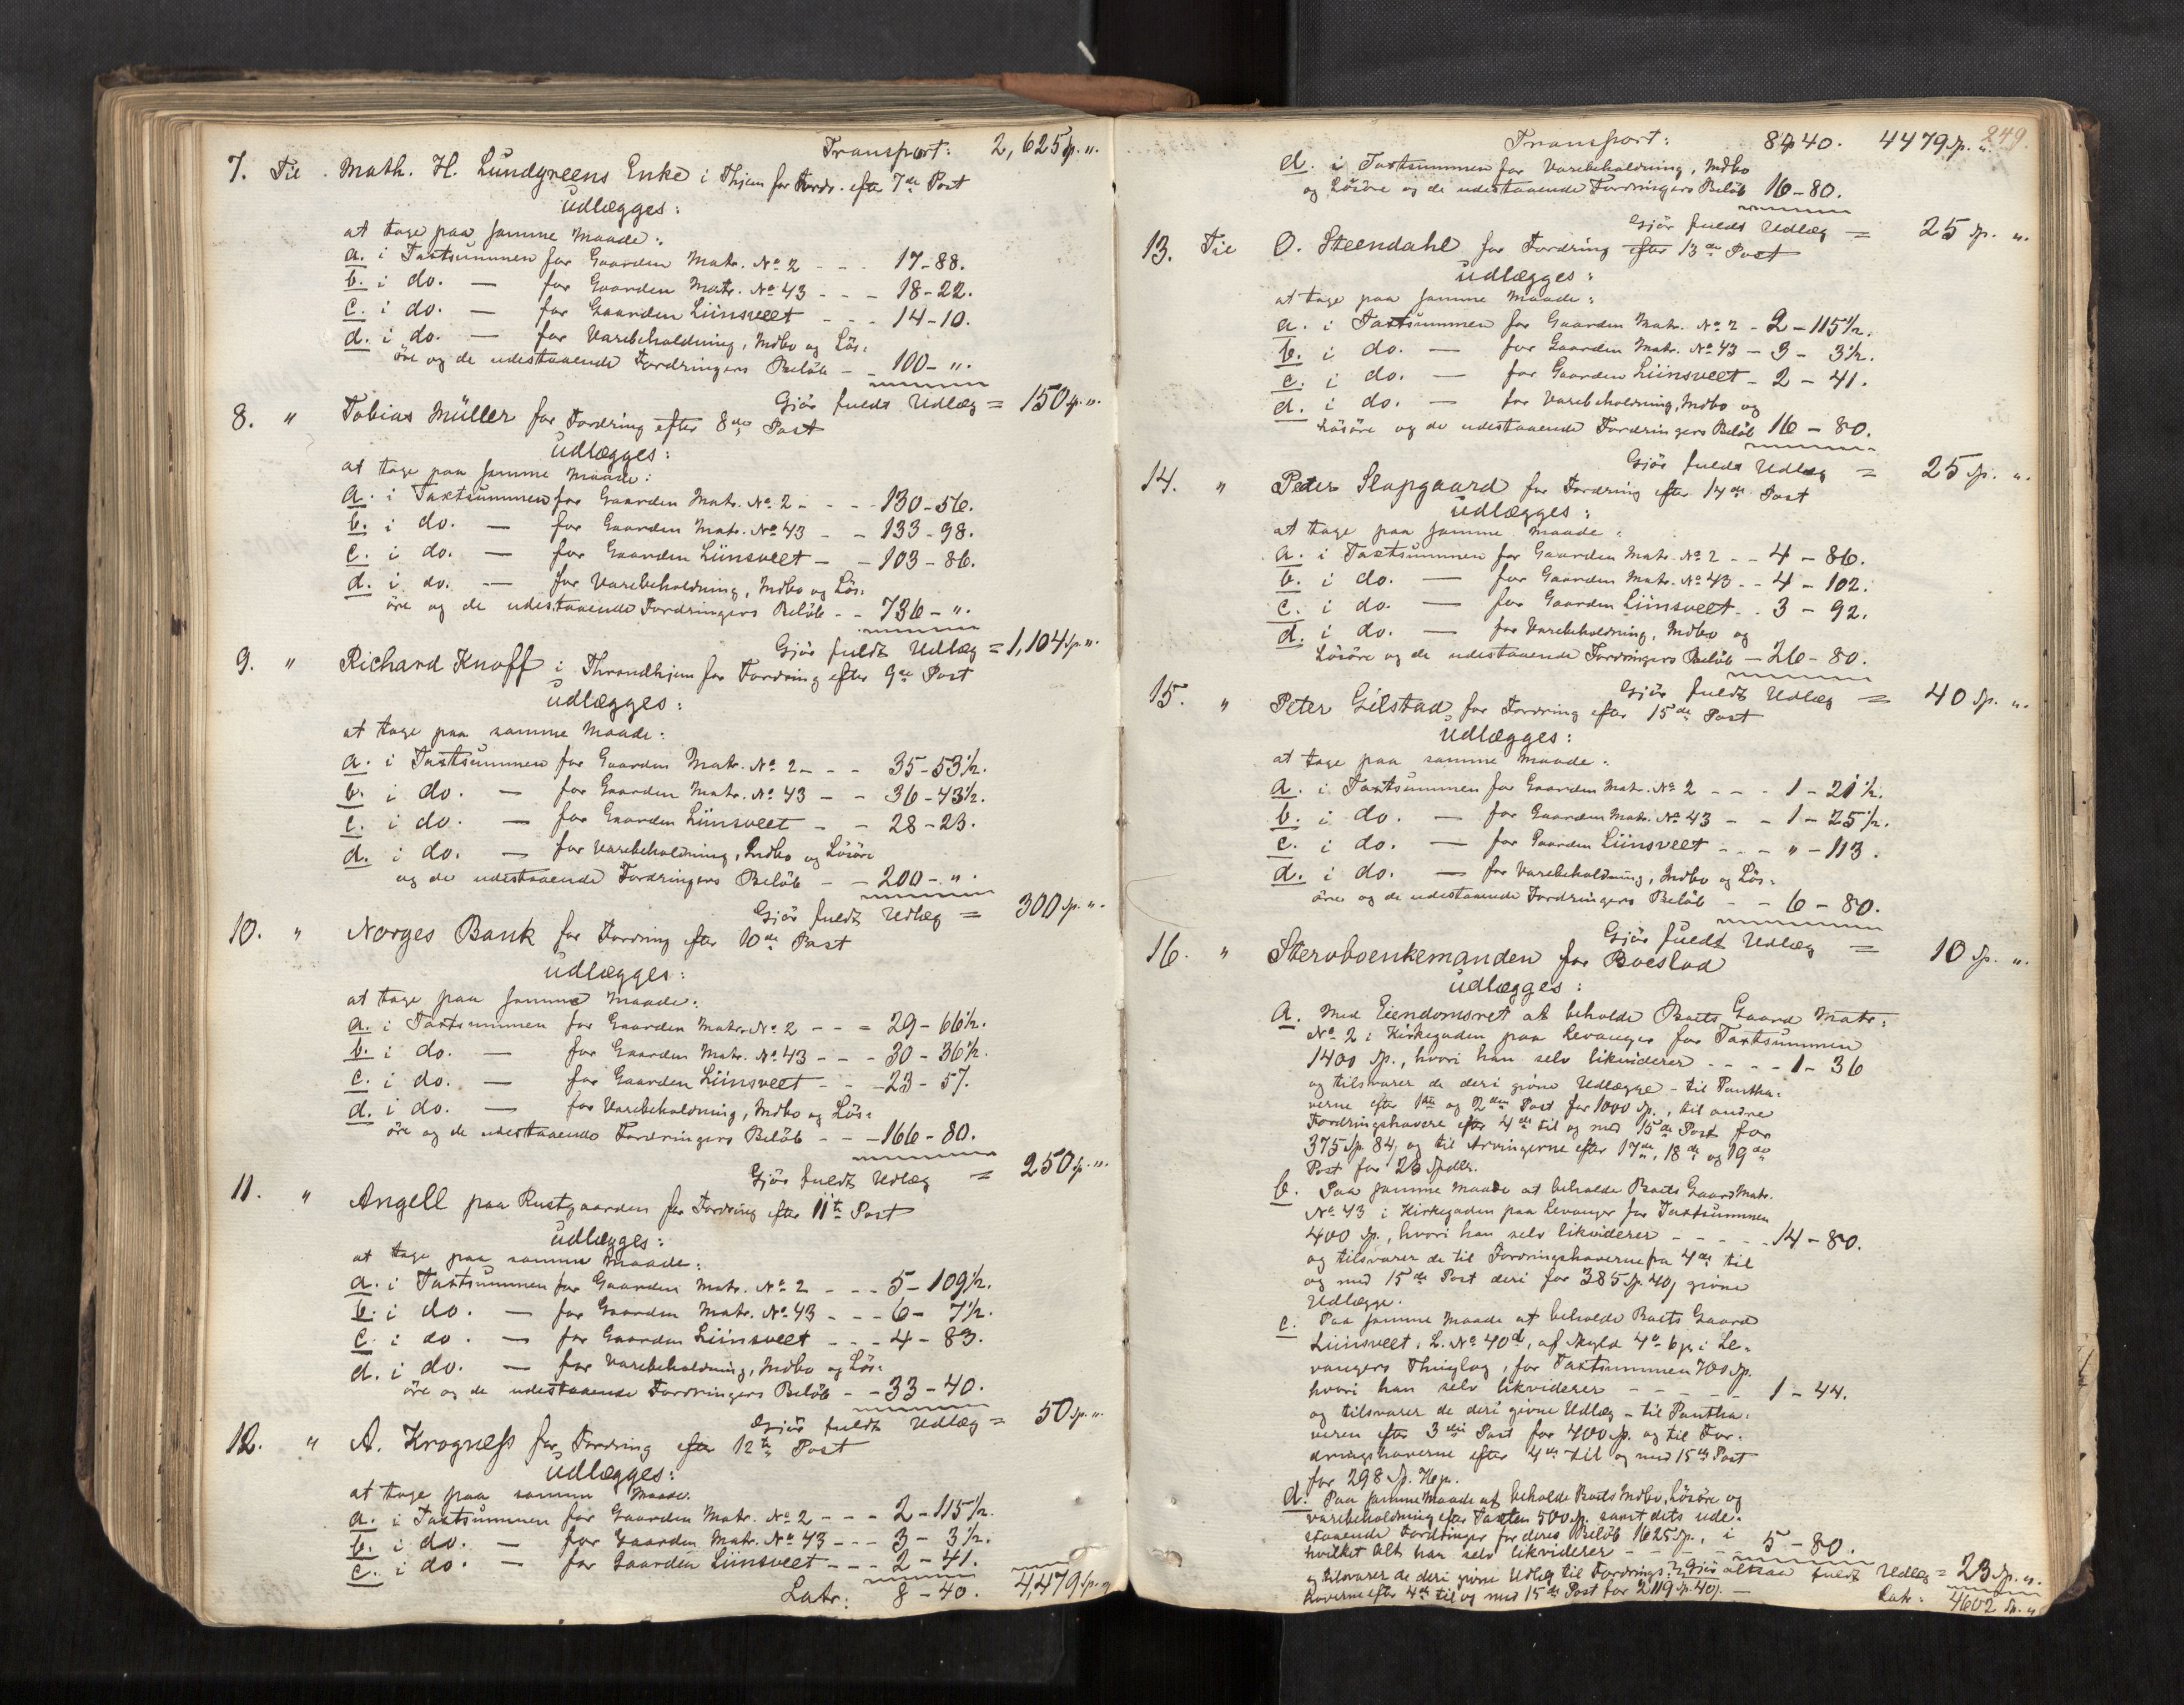 Transport: 2,625 Sp. ".
7. Til Math. H. Lundgreens Enke i Thjem for Fordr. efter 7de Post
udlægges:
at tage paa samme Maade:
a. i Taxtsummen for Gaarden Matr. No 2 - - - 17-88.
b. i do. — for Gaarden Matr. No 43 - - - 18-22.
c. i do. — for Gaarden Liinsveet - - - 14-10.
d. i do. — for Varebeholdning, Indbo og Løs-
øre og de udestaaende Fordringers Beløb - - 100- ".
Gjør fuldt Udlæg = 150 Sp. ".
8. " Tobias Müller for Fordring efter 8de Post
udlægges:
at tage paa samme Maade:
a. i Taxtsummen for Gaarden Matr. No 2 - - - 130-56.
b. i do. — for Gaarden Matr. No 43 - - 133-98.
c. i do. — for Gaarden Liinsveet - - 103-86.
d. i do. — for Varebeholdning, Indbo og Løs-
øre og de udestaaende Fordringers Beløb - - 736- ".
Gjør fuldt Udlæg = 1,104 Sp ".
9. " Richard Knoff i Throndhjem for Fordring efter 9de Post
udlægges:
at tage paa samme Maade:
a. i Taxtsummen for Gaarden Matr. No 2 - - - 35-53½.
b. i do. — for Gaarden Matr. No 43 - - 36-43½.
c. i do. — for Gaarden Liinsveet - - 28-23.
d. i do. — for Varebeholdning, Indbo og Løsøre
og de udestaaende Fordringers Beløb - - 200- ".
Gjør fuldt Udlæg = 300 Sp. ".
10. " Norges Bank for Fordring efter 10de Post
udlægges:
at tage paa samme Maade:
a. i Taxtsummen for Gaarden Matr. No 2 - - - 29-66½.
b. i do. — for Gaarden Matr. No 43 - - - 30-36½.
c. i do. — for Gaarden Liinsveet - - - 23-57.
d. i do. — for Varebeholdning, Indbo og Løs-
øre og de udestaaende Fordringers Beløb - - - 166-80.
Gjør fuldt Udlæg = 250 Sp. ".
11. " Angell paa Rustgaarden for Fordring efter 11te Post
udlægges:
at tage paa samme Maade:
a. i Taxtsummen for Gaarden Matr. No 2 - - - 5-109½.
b. i do. — for Gaarden Matr. No 43 - - - 6-7½.
c. i do. — for Gaarden Liinsveet - - - 4-83.
d. i do. — for Varebeholdning, Indbo og Løs-
øre og de udestaaende Fordringers Beløb - - 33-40.
Gjør fuldt Udlæg = 50 Sp. ".
12. " A. Krogness for Fordring efter 12te Post
udlægges:
at tage paa samme Maade.
a. i Taxtsummen for Gaarden Matr. No 2 - - - 2-115½.
b. i do. — for Gaarden Matr. No 43 - - - 3-3½.
c. i do. — for Gaarden Liinsveet - - - 2-41.
Latr: 8-40. 4,479 Sp. "
249.
Transport: 8-40. 4479 Sp. ".
d. i Taxtsummen for Varebeholdning, Indbo
og Løsøre og de udestaaende Fordringers Beløb 16-80.
Gjør fuldt Udlæg = 25 Sp. ".
13. Til O. Steendahl for Fordring efter 13de Post
udlægges:
at tage paa samme Maade:
a. i Taxtsummen for Gaarden Matr. No 2 - 2-115½.
b. i do. — for Gaarden Matr. No 43 - 3-3½.
c. i do. — for Gaarden Liinsveet - 2-41.
d. i do. — for Varebeholdning, Indbo og
Løsøre og de udestaaende Fordringers Beløb 16-80.
Gjør fuldt Udlæg = 25 Sp. ".
14. " Peter Slapgaard for Fordring efter 14de Post
udlægges:
at tage paa samme Maade:
a. i Taxtsummen for Gaarden Matr. No 2 - - 4-86.
b. i do. — for Gaarden Matr. No 43 - - 4-102.
c. i do. — for Gaarden Liinsveet - - 3-92.
d. i do. — for Varebeholdning, Indbo og
Løsøre og de udestaaende Fordringers Beløb - 26-80.
Gjør fuldt Udlæg = 40 Sp. ".
15. " Peter Gilstad for Fordring efter 15de Post
udlægges:
at tage paa samme Maade:
a. i Taxtsummen for Gaarden Matr. No 2 - - - 1-21½.
b. i do. — for Gaarden Matr. No 43 - - 1-25½.
c. i do. — for Gaarden Liinsveet - - - "-113.
d. i do. — for Varebeholdning, Indbo og Løs-
øre og de udestaaende Fordringers Beløb - - 6-80.
Gjør fuldt Udlæg = 10 Sp. ".
16. " Stervboenkemanden for Boeslod
udlægges:
a. Med Eiendomsret at beholde Boets Gaard Matr:
No 2 i Kirkegaden paa Levanger for Taxtsummen
1400 Sp., hvori han selv likviderer - - - - 1-36
og tilsvarer de deri givne Udlægge - til Pantha-
verne efter 1ste og 2den Post for 1000 Sp., til andre
Fordringshavere efter 4de til og med 15de Post for
375 Sp. 84, og til Arvingerne efter 17de, 18de og 19de
Post for 23 Spdlr.
b. Paa samme Maade at beholde Boets Gaard Matr.
No 43 i Kirkegaden paa Levanger for Taxtsummen
400 Sp., hvori han selv likviderer - - - - - 14-80.
og tilsvarer de til Fordringshaverne fra 4de til
og med 15de Post deri for 385 Sp. 40, givne
Udlægge.
c. Paa samme Maade at beholde Boets Gaard
Liinsveet, L. No 40d, af Skyld 4 6 i Le-
vangers Thinglag, for Taxtsummen 700 Sp.
hvori han selv likviderer - - - - - 1-44.
og tilsvarer de deri givne Udlæg - til Pantha-
veren efter 3die Post for 400 Sp. og til For-
dringshaverne efter 4de til og med 15de Post
for 298 Sp. 76.
d. Paa samme Maade at beholde Boets Indbo, Løsøre og
Varebeholdning efter Taxten 500 Sp. samt dets ude-
staaende Fordringer for deres Beløb 1625 Sp., i
hvilket Alt han selv likviderer - - - - 5-80.
og tilsvarer de deri givne Udlæg til Fordrings- Gjør altsaa fuldt Udlæg = 23 Sp. ".
haverne efter 4de til og med 15de Post for 2119 Sp. 40. —
Latr: 4602 Sp. "